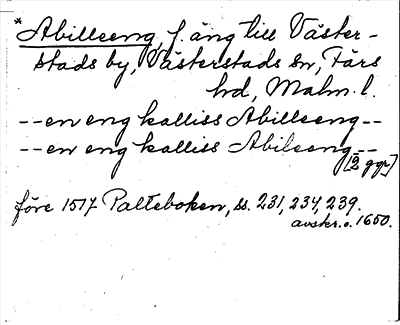 * Abilleeng, f. äng till Väster-
stads by, Västerstads sn, Färs
hd, Malm. l.
--en eng kalliss Abilleeng--
--en eng kalliss Abileeng--
[2 ggr]
före 1517 Palteboken, ss. 231, 234, 239.
avskr. o. 1650.